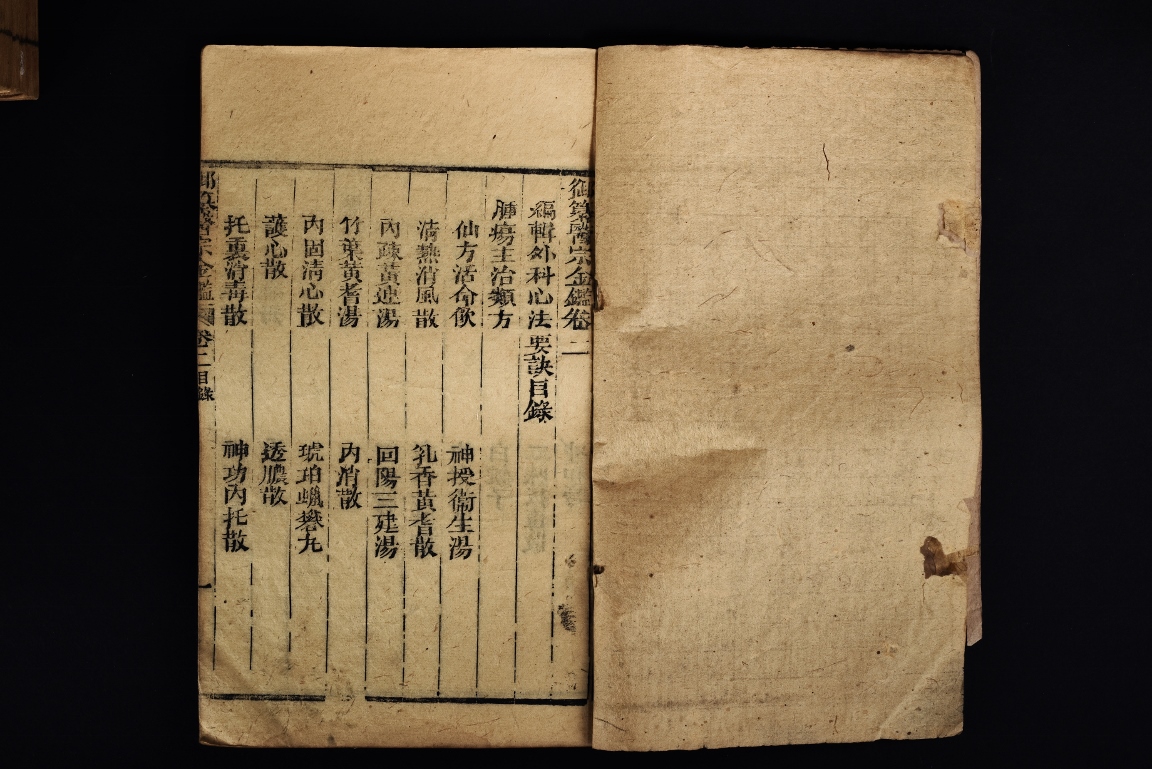 御纂醫宗金鑑卷二
編輯外科心法要訣目錄
腫瘍主治類方
仙方活命飲
神授衛生湯
清熱消風散
乳香黃耆散
內疎黃連湯
回陽三建湯
竹葉黃耆湯
內消散
內固清心散
琥珀蠟礬丸
護心散
透膿散
托裏消毒散
神功內托散
御纂醫宗金鑑
卷二
目錄
一